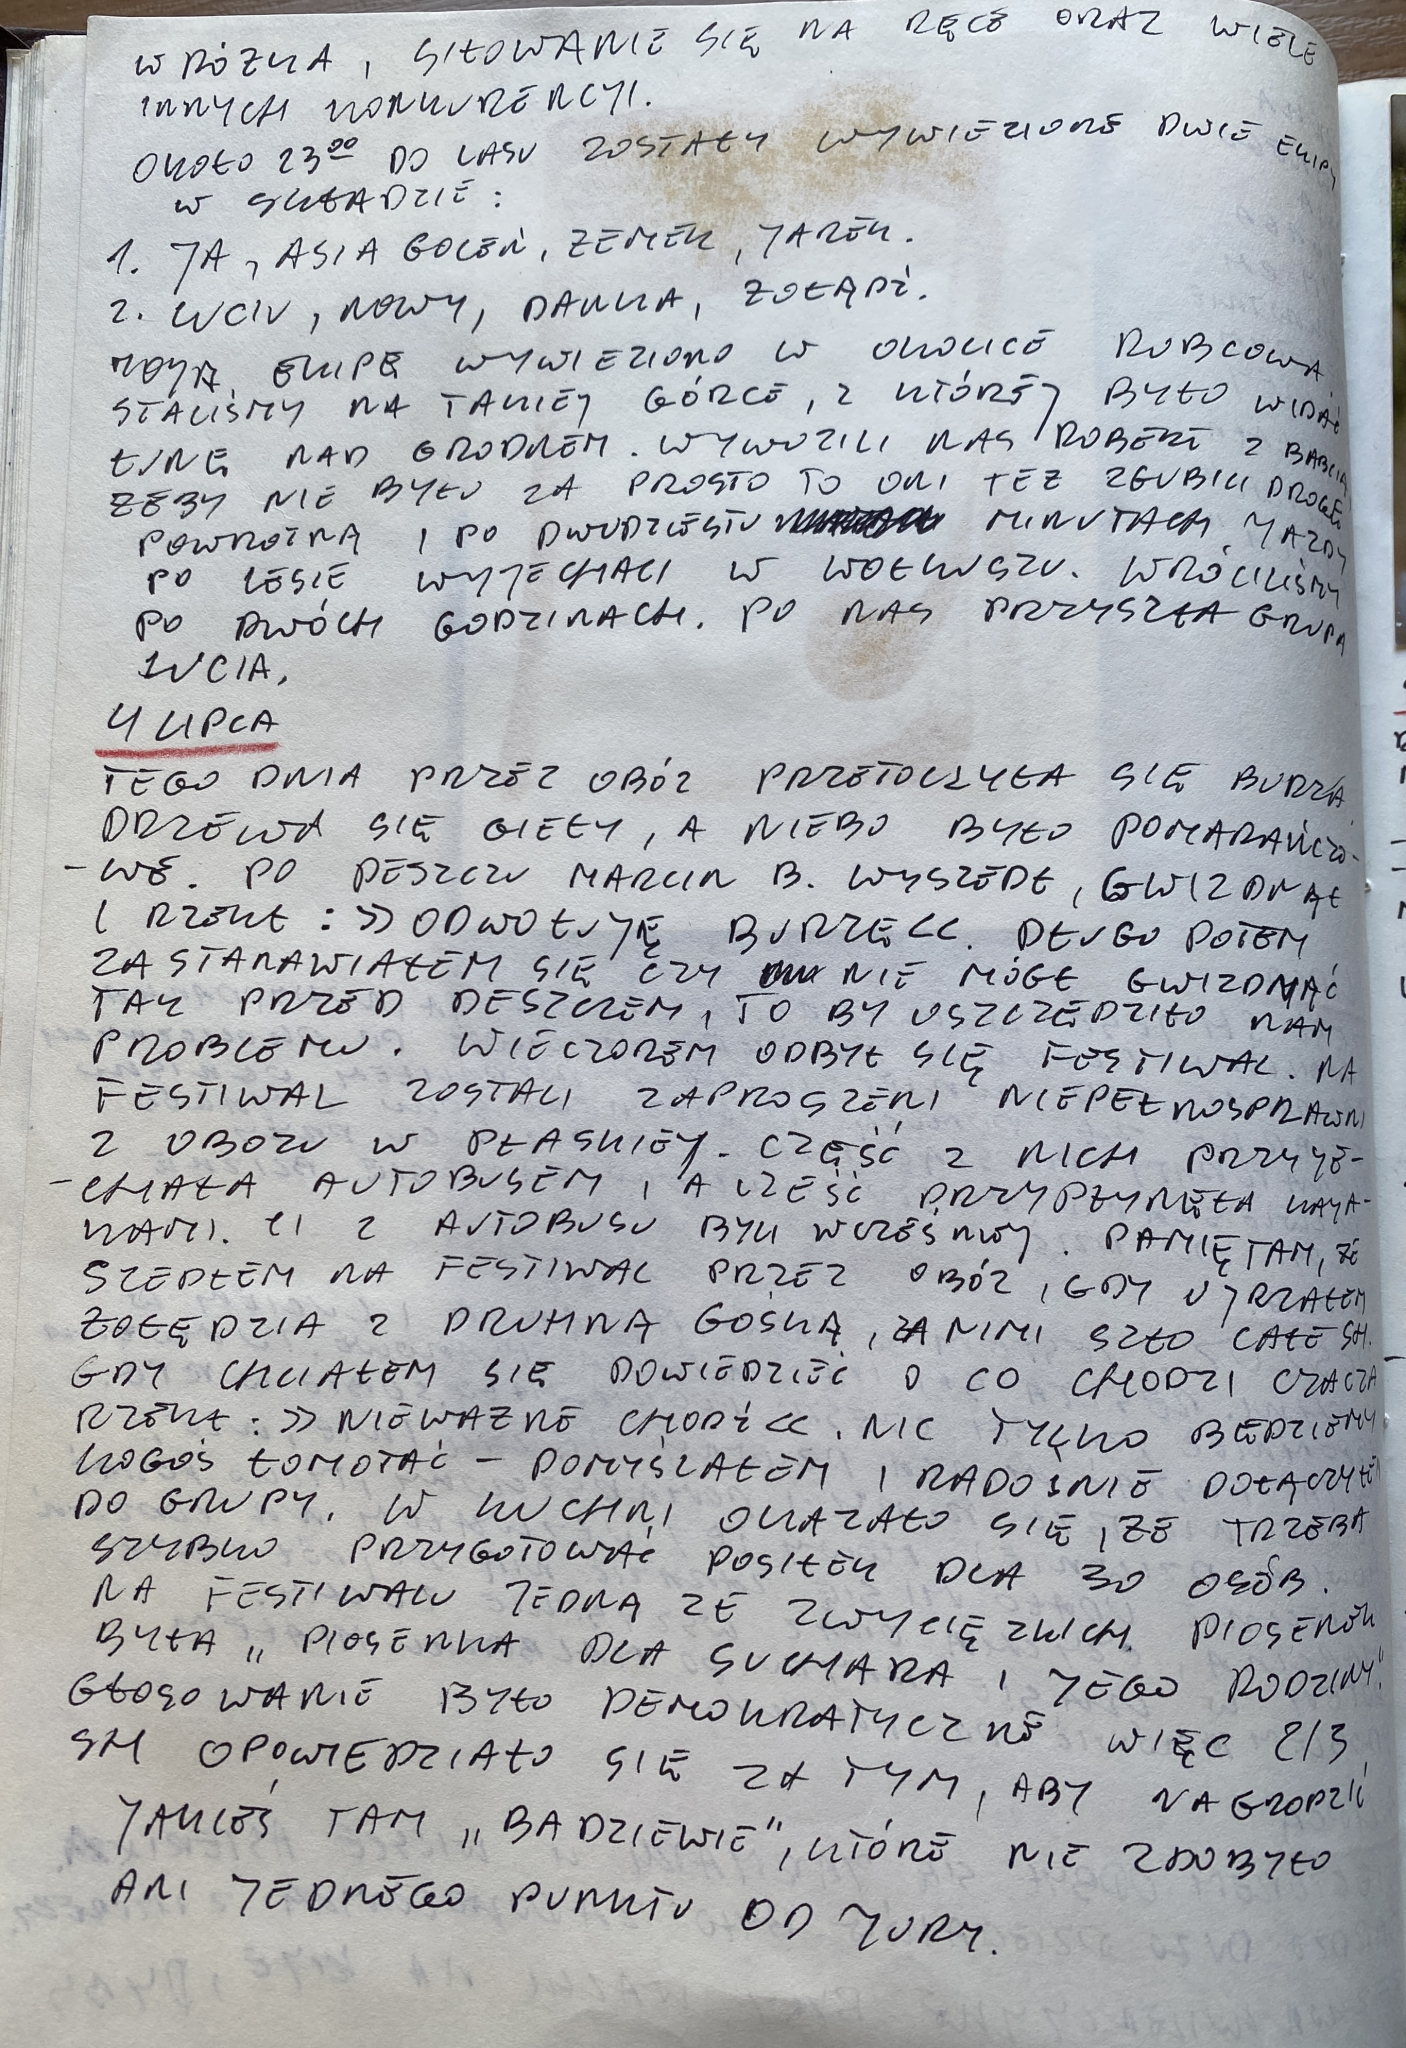 WRÓŻKA, SIŁOWANIE SIĘ NA RĘCE ORAZ WIELE
INNYCH KONKURENCYI.
OKOŁO 23⁰⁰ DO LASU ZOSTAŁY WYWIEZIONE DWIE EKIPY
W SKŁADZIE:
1. JA, ASIA GOLEŃ, ZEMEK, JAREK.
2. LUCIU, NOWY, DANKA, ŻOŁĄDŹ.
MOJĄ EKIPĘ WYWIEZIONO W OKOLICE RUBCOWA
STALIŚMY NA TAKIEJ GÓRCE, Z KTÓREJ BYŁO WIDAĆ
ŁUNĘ NAD GRODNEM. WYWOZILI NAS ROBERT Z BABCIĄ
ŻEBY NIE BYŁO ZA PROSTO TO ONI TEŻ ZGUBILI DROGĘ
POWROTNĄ I PO DWUDZIESTU MINUTACH JAZDY
PO LESIE WYJECHALI W WOŁKUSZU. WRÓCILIŚMY
PO DWÓCH GODZINACH. PO NAS PRZYSZŁA GRUPA
LUCIA.
4 LIPCA
TEGO DNIA PRZEZ OBÓZ PRZETOCZYŁA SIĘ BURZA.
DRZEWA SIĘ GIĘŁY, A NIEBO BYŁO POMARAŃCZO-
-WE. PO DESZCZU MARCIN B. WYSZEDŁ, GWIZDNĄŁ
I RZEKŁ: >> ODWOŁUJĘ BURZĘ<<. DŁUGO POTEM
ZASTANAWIAŁEM SIĘ CZY NIE MÓGŁ GWIZDNĄĆ
TAK PRZED DESZCZEM, TO BY USZCZĘDZIŁO NAM
PROBLEMU. WIECZOREM ODBYŁ SIĘ FESTIWAL. NA
FESTIWAL ZOSTALI ZAPROSZENI NIEPEŁNOSPRAWNI
Z OBOZU W PŁASKIEJ. CZĘŚĆ Z NICH PRZYJE-
-CHAŁA AUTOBUSEM, A CZĘŚĆ PRZYPŁYNĘŁA KAJA-
KAMI. CI Z AUTOBUSU BYLI WCZEŚNIEJ. PAMIĘTAM, ŻE
SZEDŁEM NA FESTIWAL PRZEZ OBÓZ, GDY UJRZAŁEM
ŻOŁĘDZIA Z DRUHNĄ GOŚKĄ, ZA NIMI SZŁO CAŁE SH.
GDY CHCIAŁEM SIĘ DOWIEDZIEĆ O CO CHODZI CZACZA
RZEKŁ: >> NIEWAŻNE CHODŹ<<. NIC TYLKO BĘDZIEMY
KOGOŚ ŁOMOTAĆ – POMYŚLAŁEM I RADOŚNIE DOŁĄCZYŁEM
DO GRUPY. W KUCHNI OKAZAŁO SIĘ, ŻE TRZEBA
SZYBKO PRZYGOTOWAĆ POSIŁEK DLA 30 OSÓB.
NA FESTIWALU JEDNĄ ZE ZWYCIĘZKICH PIOSENEK
BYŁA „PIOSENKA DLA SUCHARA I JEGO RODZINY".
GŁOSOWANIE BYŁO DEMOKRATYCZNE WIĘC 2/3
SH OPOWIEDZIAŁO SIĘ ZA TYM, ABY NAGRODZIĆ
JAKIEŚ TAM „BADZIEWIE", KTÓRE NIE ZDOBYŁO
ANI JEDNEGO PUNKTU OD JURY.